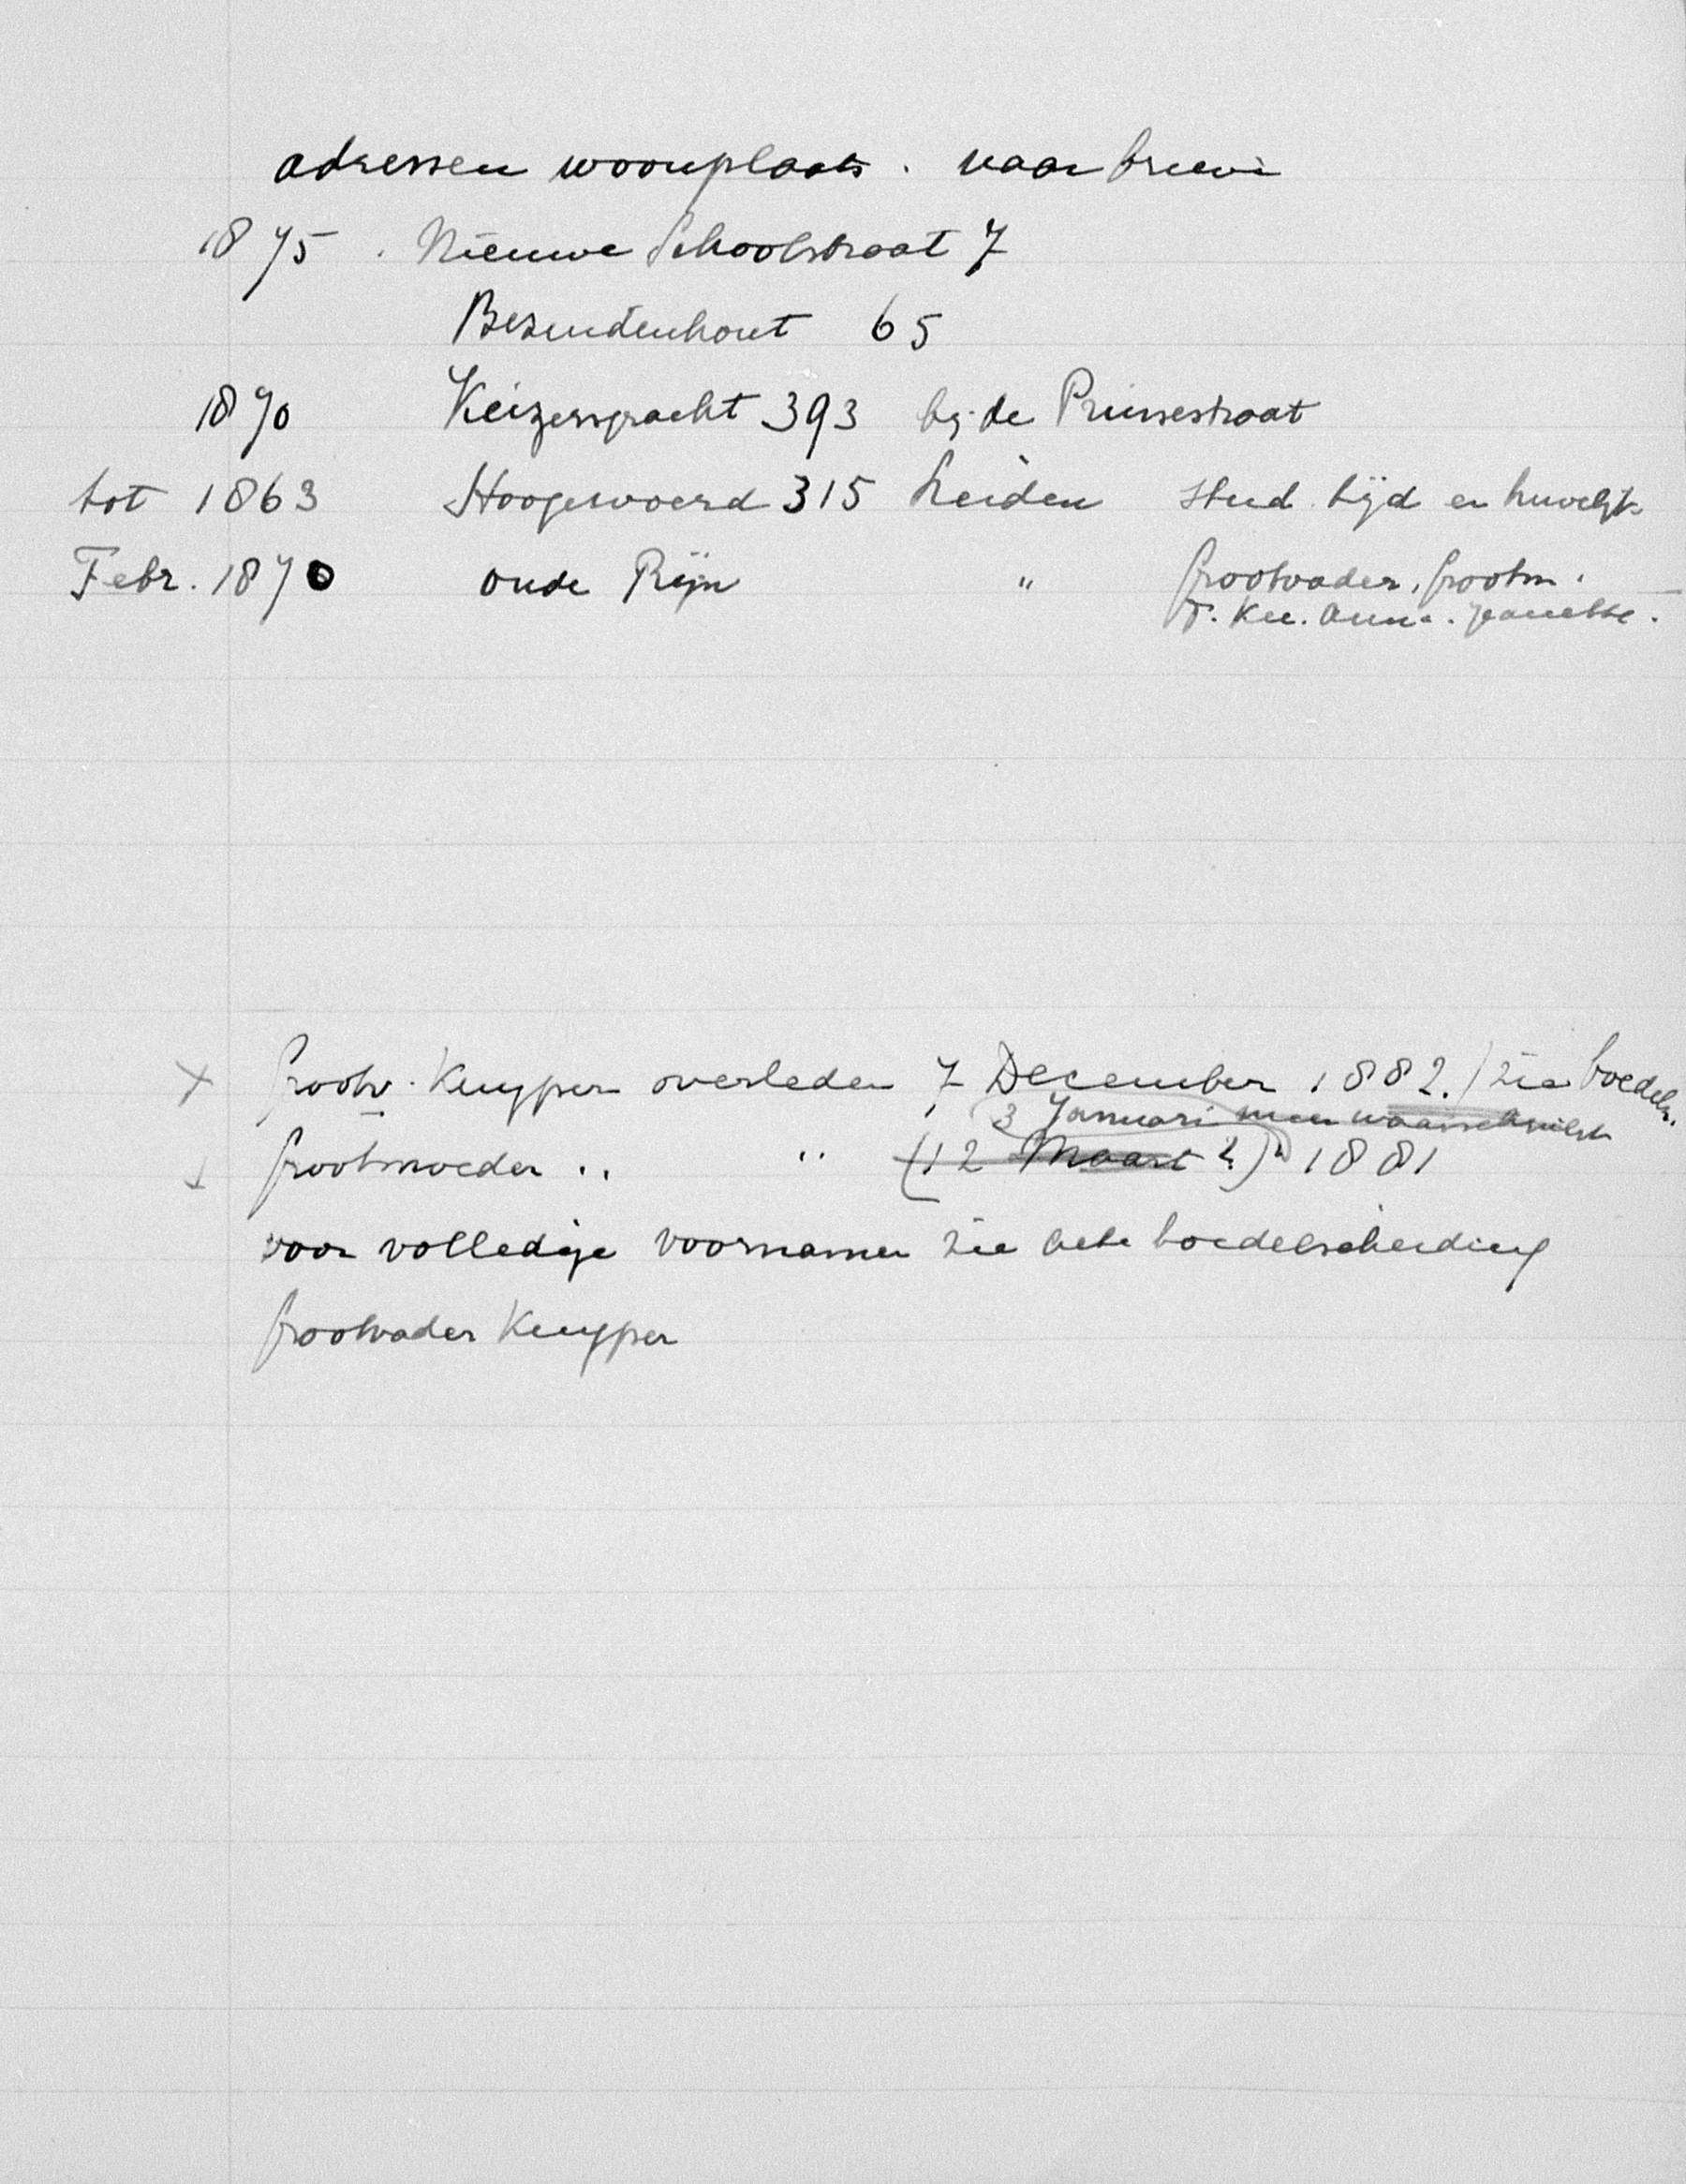 adressen woonplaats. naar brieven
1875. Nieuwe Schoolstraat 7
Bezuidenhout 65
1870 Keizersgracht 393 bij de Prinsestraat
tot 1863 Hoogewoerd 315 Leiden stud. tijd en huwelijk
Febr. 1870 oude Rijn " Grootvader, Grootm.
T. Kee. Anna. Jeanette.
X Grootv. Kuyper overleden 7 December 1882. (zie boedels.
3 Januari meer waarschijnlijk
Grootmoeder " " (12 Maart?) 1881
voor volledige voornamen zie acte boedelscheiding
Grootvader Kuyper